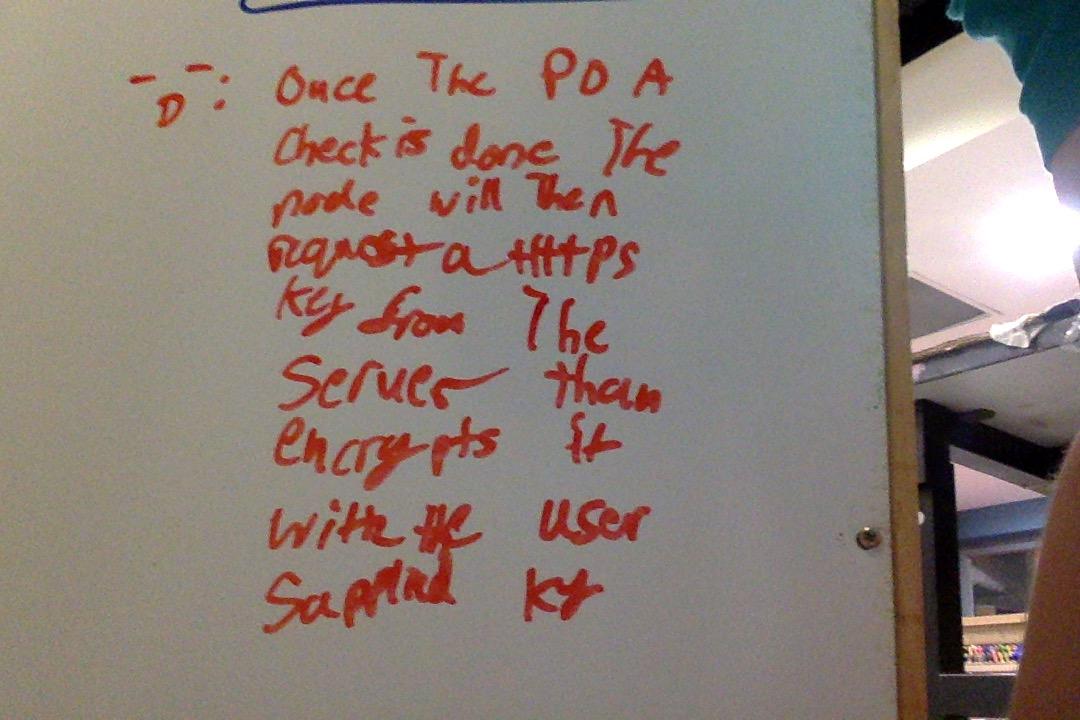 - D -: Once The POA
Check is done The
node will Then
request a HTTPS
Ky from The
Server than
encrypts it
with the user
Supplied Ky